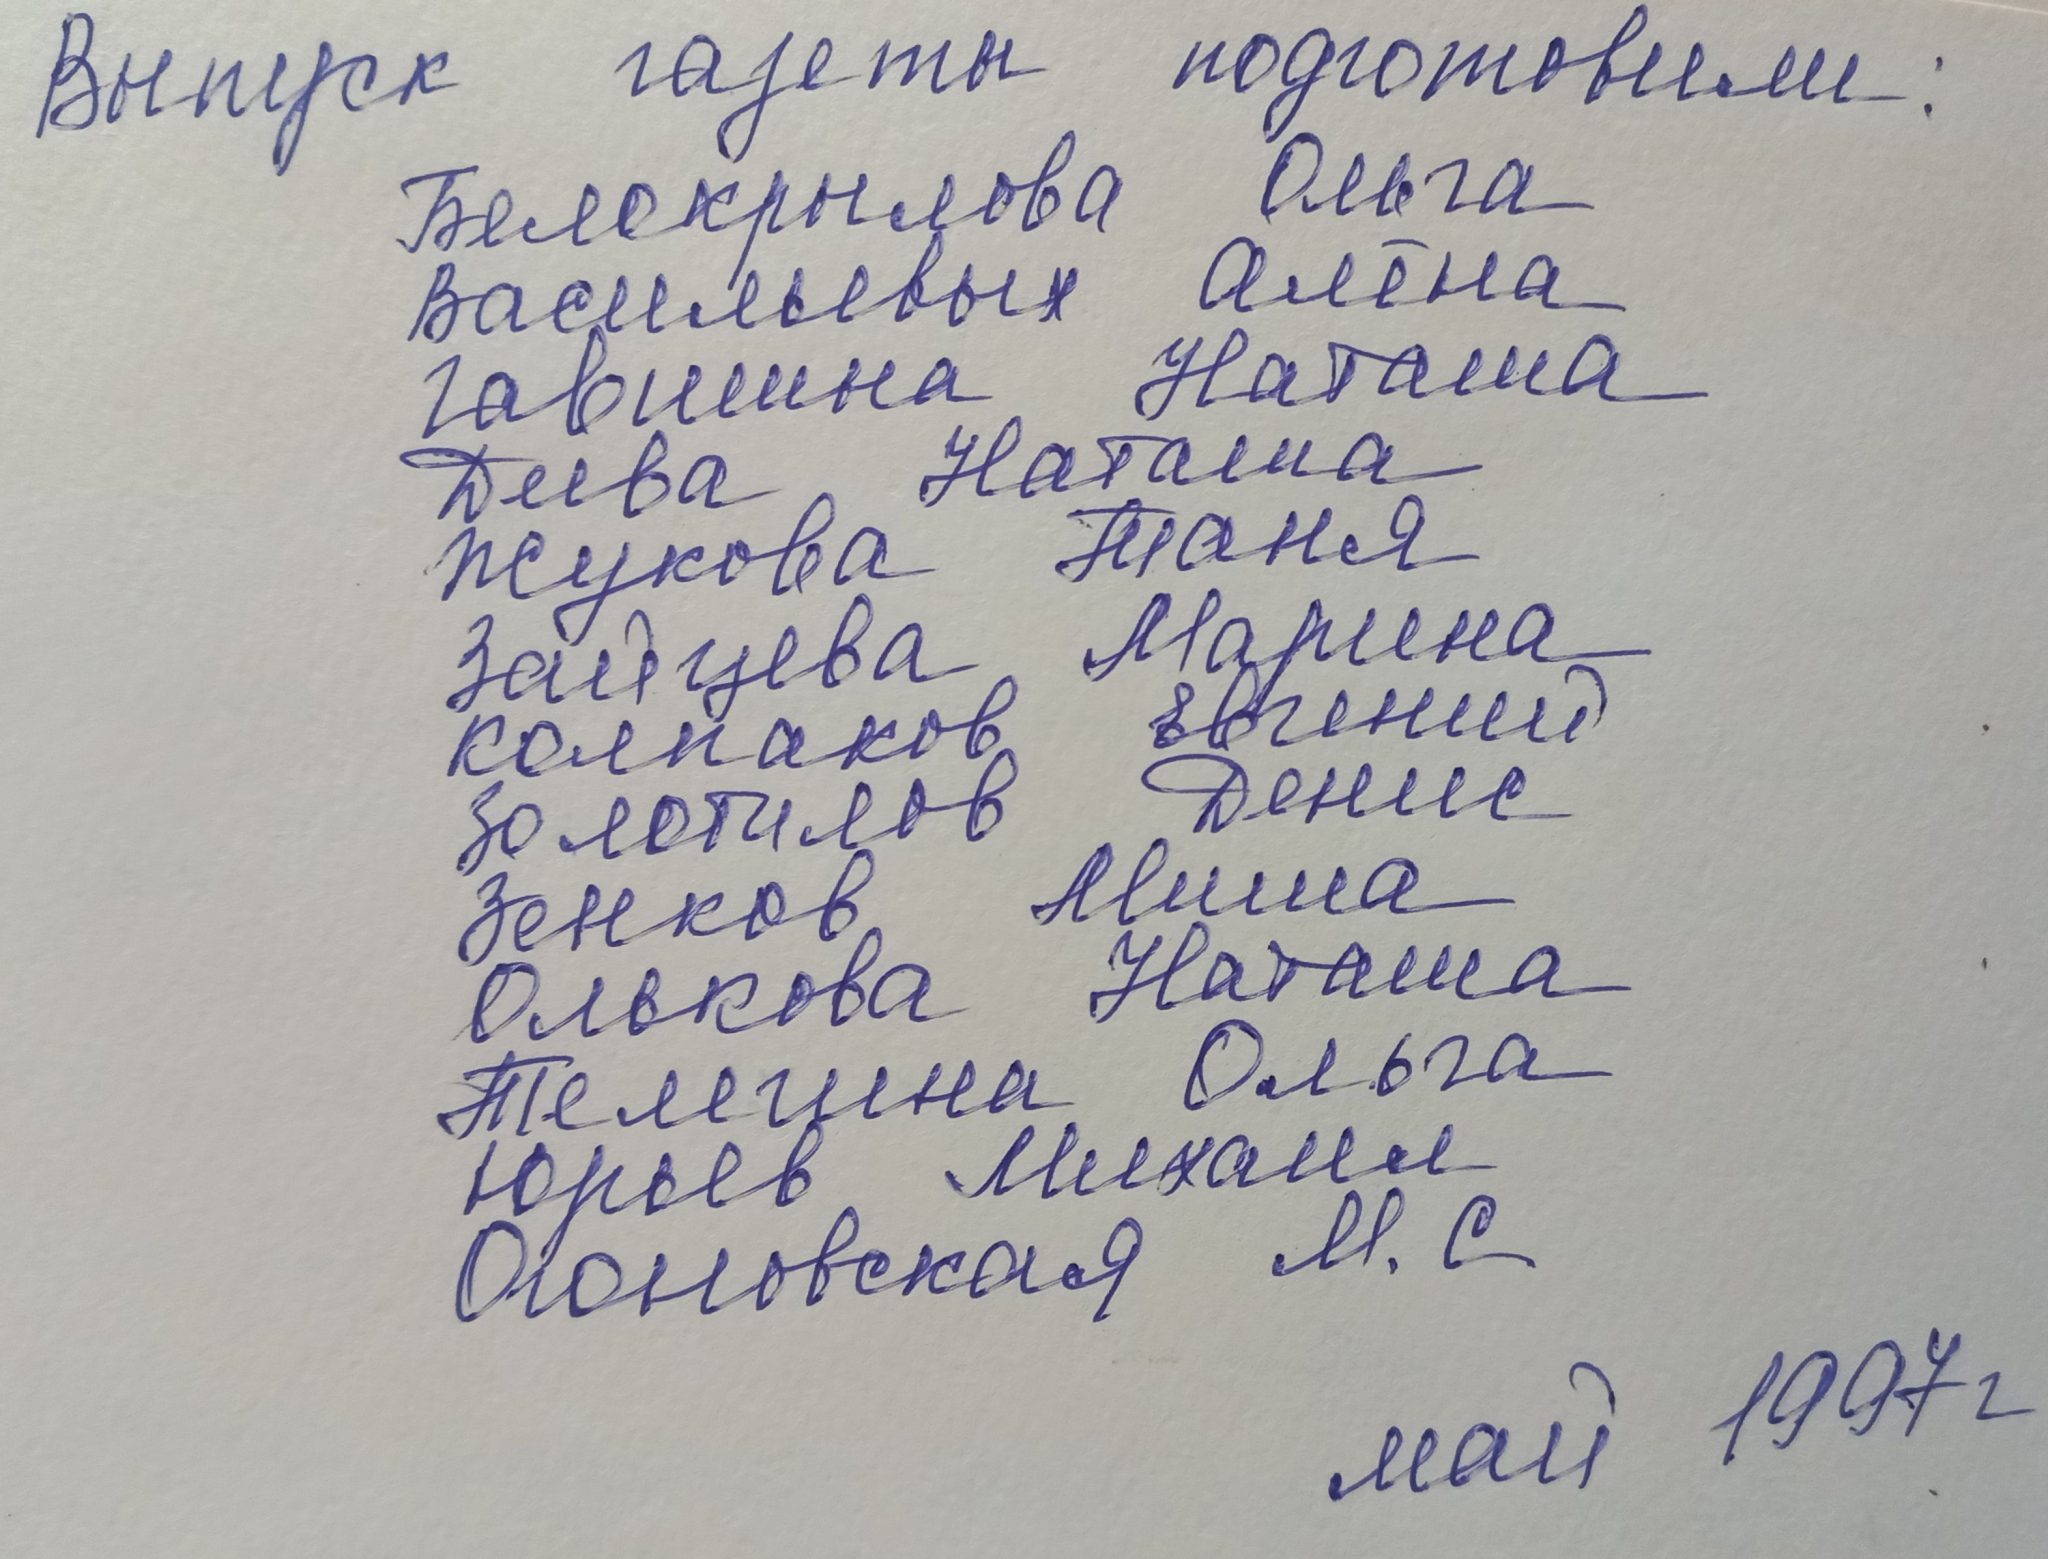 Выпуск газеты подготовили:
Белокрылова Ольга
Васильевых Алёна
Гавшина Наташа
Дива Наташа
Жукова Таня
Зайцева Марина
Колпаков Евгений
Золотилов Денис
Зенков Миша
Олькова Наташа
Телегина Ольга
Юрьев Михаил
Огоновская М.С
май 1997г